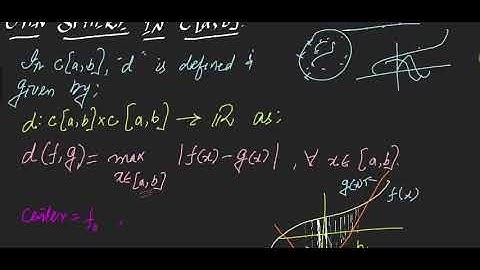 OPEN SPHERE IN C[a,b].
In C[a,b], "d" is defined &
given by;
d: C[a,b] × C[a,b] → ℝ as;
d(f,g) = max |f(x) - g(x)|, ∀ x ∈ [a,b].
x∈[a,b]
g(x)
f(x)
Center = f₀ ,
b